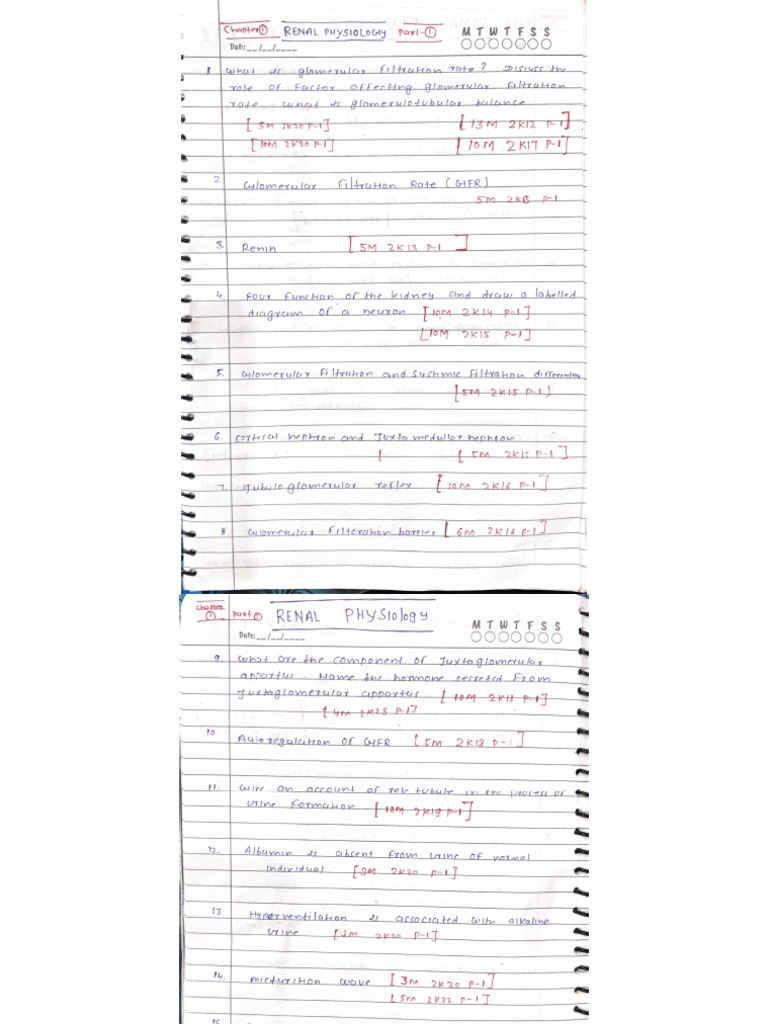 Chapter ① RENAL PHYSIOLOGY Part-①
M T W T F S S
Date: __/__/____
1 What is glomerular filtration rate? Discuss the
role of factor affecting glomerular filtration
rate. What is glomerulotubular balance
[5M 2K20 P-1] [13M 2K12 P-1]
[10M 2K20 P-1] [10M 2K17 P-1]
2. Glomerular Filtration Rate (GFR)
5M 2K13 P-1
3. Renin [5M 2K13 P-1]
4. Four Function of the kidney and draw a labelled
diagram of a neuron [10M 2K14 P-1]
[10M 2K15 P-1]
5. Glomerular filtration and systemic filtration
[5M 2K15 P-1]
6. Cortical nephron and Juxta medullar nephron
[ [5M 2K15 P-1]
7. Tubuloglomerular reflex [10M 2K16 P-1]
8 Glomerular Filteration barrier [6M 2K16 P-1]
Chapter ① Part RENAL PHYSIOlogy
M T W T F S S
Date: __/__/____
9. What are the component of Juxtaglomerular
appartus. Name the hormone secreted From
Juxtaglomerular appartus [10M 2K13 P-1]
[4M 2K23 P-1]
10 Autoregulation OF GFR [5M 2K18 P-1]
11. Write an account of role tubule in the process of
urine formation [10M 2K19 P-1]
12. Albumin is absent from urine of normal
individual [3M 2K20 P-1]
13 Hyperventilation is associated with alkaline
urine [3M 2K20 P-1]
14. micturition wave [3M 2K20 P-1]
[5M 2K22 P-1]